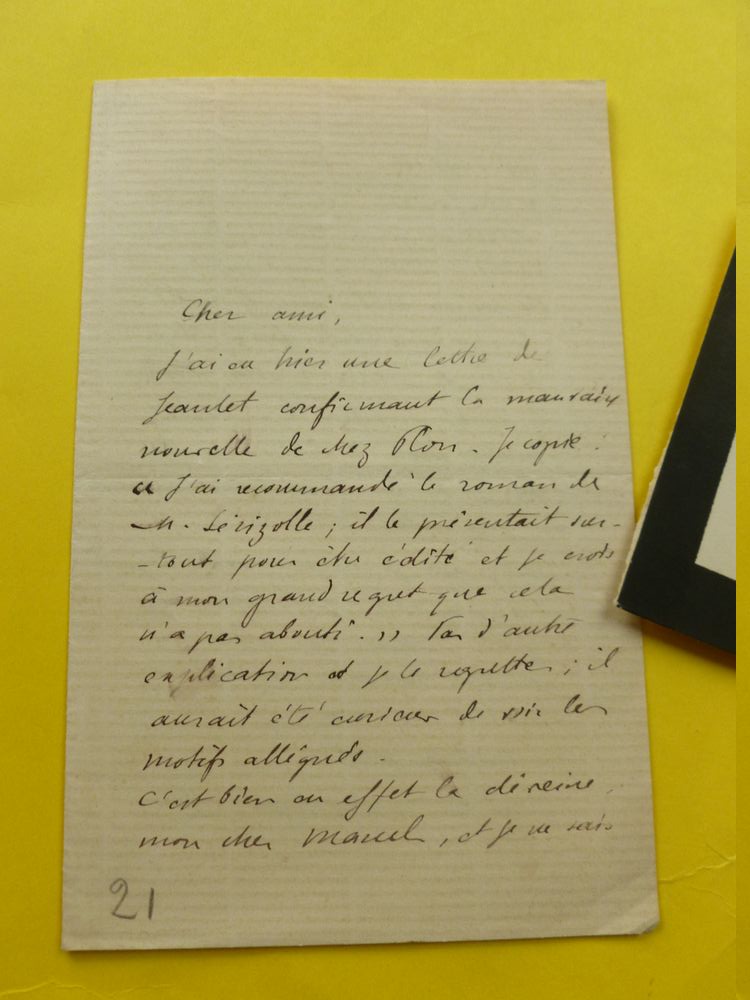 Cher ami,
J'ai eu hier une lettre de
Jeantet confirmant la mauvaise
nouvelle de chez Plon. Je copie :
« J'ai recommandé le roman de
M. ; il le présentait sur-
-tout pour être édité et je crois
à mon grand regret que cela
n'a pas abouti. » Pas d'autre
explication et je le regrette ; il
aurait été curieux de voir les
motifs allégués.
C'est bien en effet la déveine,
mon cher Marcel, et je ne sais
21